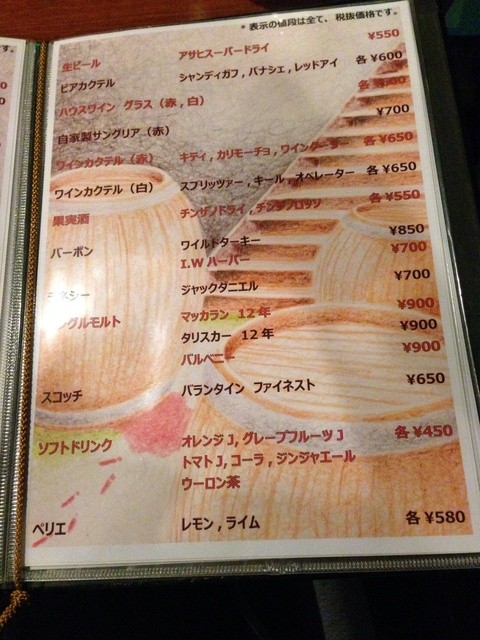 * 表示の値段は全て、税抜価格です。
生ビール アサヒスーパードライ ¥550
ビアカクテル シャンディガフ , パナシェ , レッドアイ 各 ¥600
ハウスワイン グラス（赤 , 白） 各
自家製サングリア（赤） ¥700
ワインカクテル（赤） キティ , カリモーチョ , ワインクーラー 各 ¥650
ワインカクテル（白） スプリッツァー , キール , オペレーター 各 ¥650
果実酒 チンザノドライ , チンザノロッソ 各 ¥550
バーボン ワイルドターキー ¥850
I.W ハーパー ¥700
ネシー ジャックダニエル ¥700
ングルモルト マッカラン 12 年 ¥900
タリスカー 12 年 ¥900
バルベニー ¥900
スコッチ バランタイン ファイネスト ¥650
ソフトドリンク オレンジ J , グレープフルーツ J 各 ¥450
トマト J , コーラ , ジンジャエール
ウーロン茶
ペリエ レモン , ライム 各 ¥580
す。